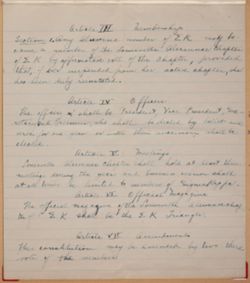 Article III Membership
Section 1. Any alumnae member of Σ K may be
come a member of the Louisville Alumnae Chapter
of Σ K by affirmative vote of the chapter, provided
that, if ever suspended from her active chapter, she
has been duly reinstated.
Article IV Officers
The officers shall be President, Vice President,
shall be elected by ballot and
serve for one year or until their successors shall be
elected.
Article V Meetings
Louisville Alumnae Chapter shall hold at least three
meetings during the year and business session shall
at all times be limited to members of Sigma Kappa.
Article Official Magazine
The official magazine of the Louisville Alumnae Chap
ter of Σ K shall be the Σ K Triangle.
Article Amendments
This constitution may be amended by two third
vote of the members